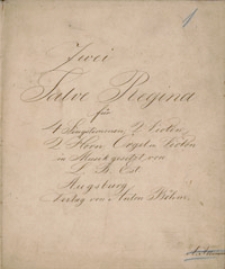 1
Zwei
Salve Regina
für
4 Singstimmen, 2 Violin
2 Horn Orgel u. Violon
in Musik gesetzt von
Augsburg
Verlag von Anton Böhm.